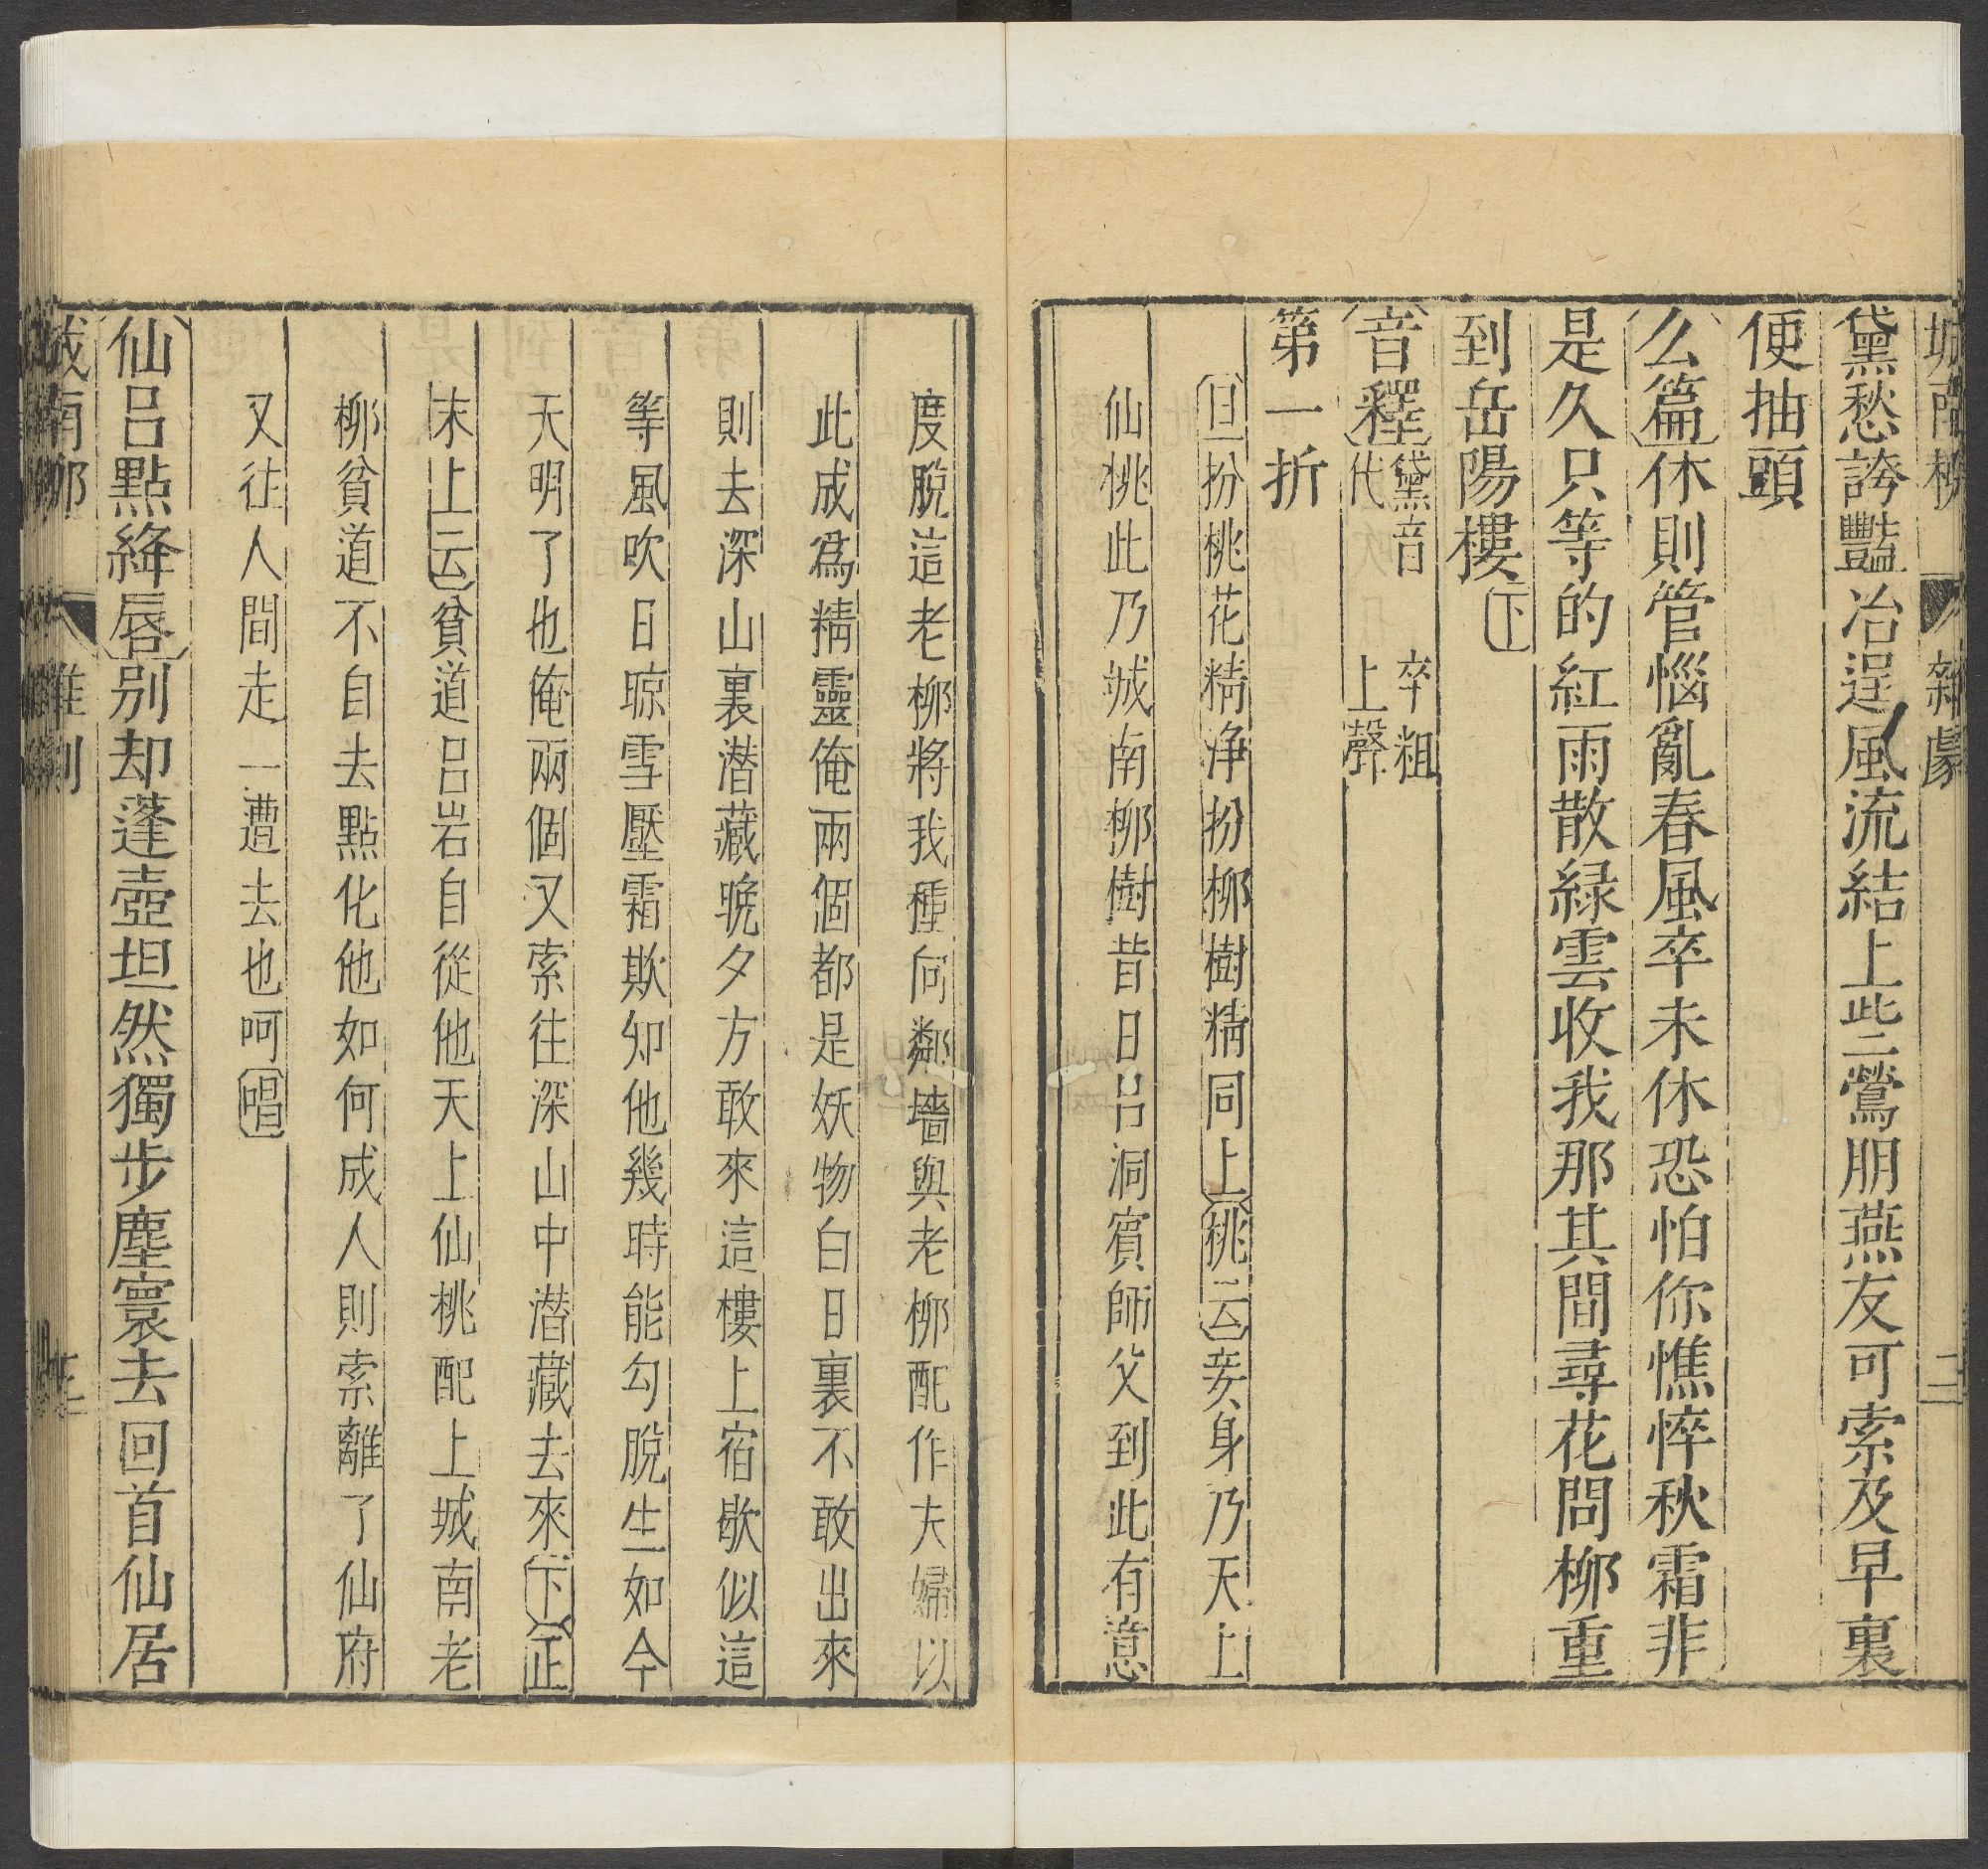 城南柳 雜劇 二
黛愁誇豔冶逞風流結上些鶯朋燕友可索及早裏
便抽頭
么篇休則管惱亂春風卒未休恐怕你憔悴秋霜非
是久只等的紅雨散綠雲收我那其間尋花問柳重
到岳陽樓下
音釋黛音代 卒粗上聲
第一折
旦扮桃花精淨扮柳樹精同上桃云妾身乃天上
仙桃此乃城南柳樹昔日呂洞賓師父到此有意
度脫這老柳將我種向鄰墻與老柳配作夫婦以
此成爲精靈俺兩個都是妖物白日裏不敢出來
則去深山裏潛藏晚夕方敢來這樓上宿歇似這
等風吹日晾雪壓霜欺知他幾時能勾脫生如今
天明了也俺兩個又索往深山中潛藏去來下正
末上云貧道呂岩自從他天上仙桃配上城南老
柳貧道不自去點化他如何成人則索離了仙府
又往人間走一遭去也呵唱
仙呂點絳唇別却蓬壺坦然獨步塵寰去回首仙居
城南柳 雜劇